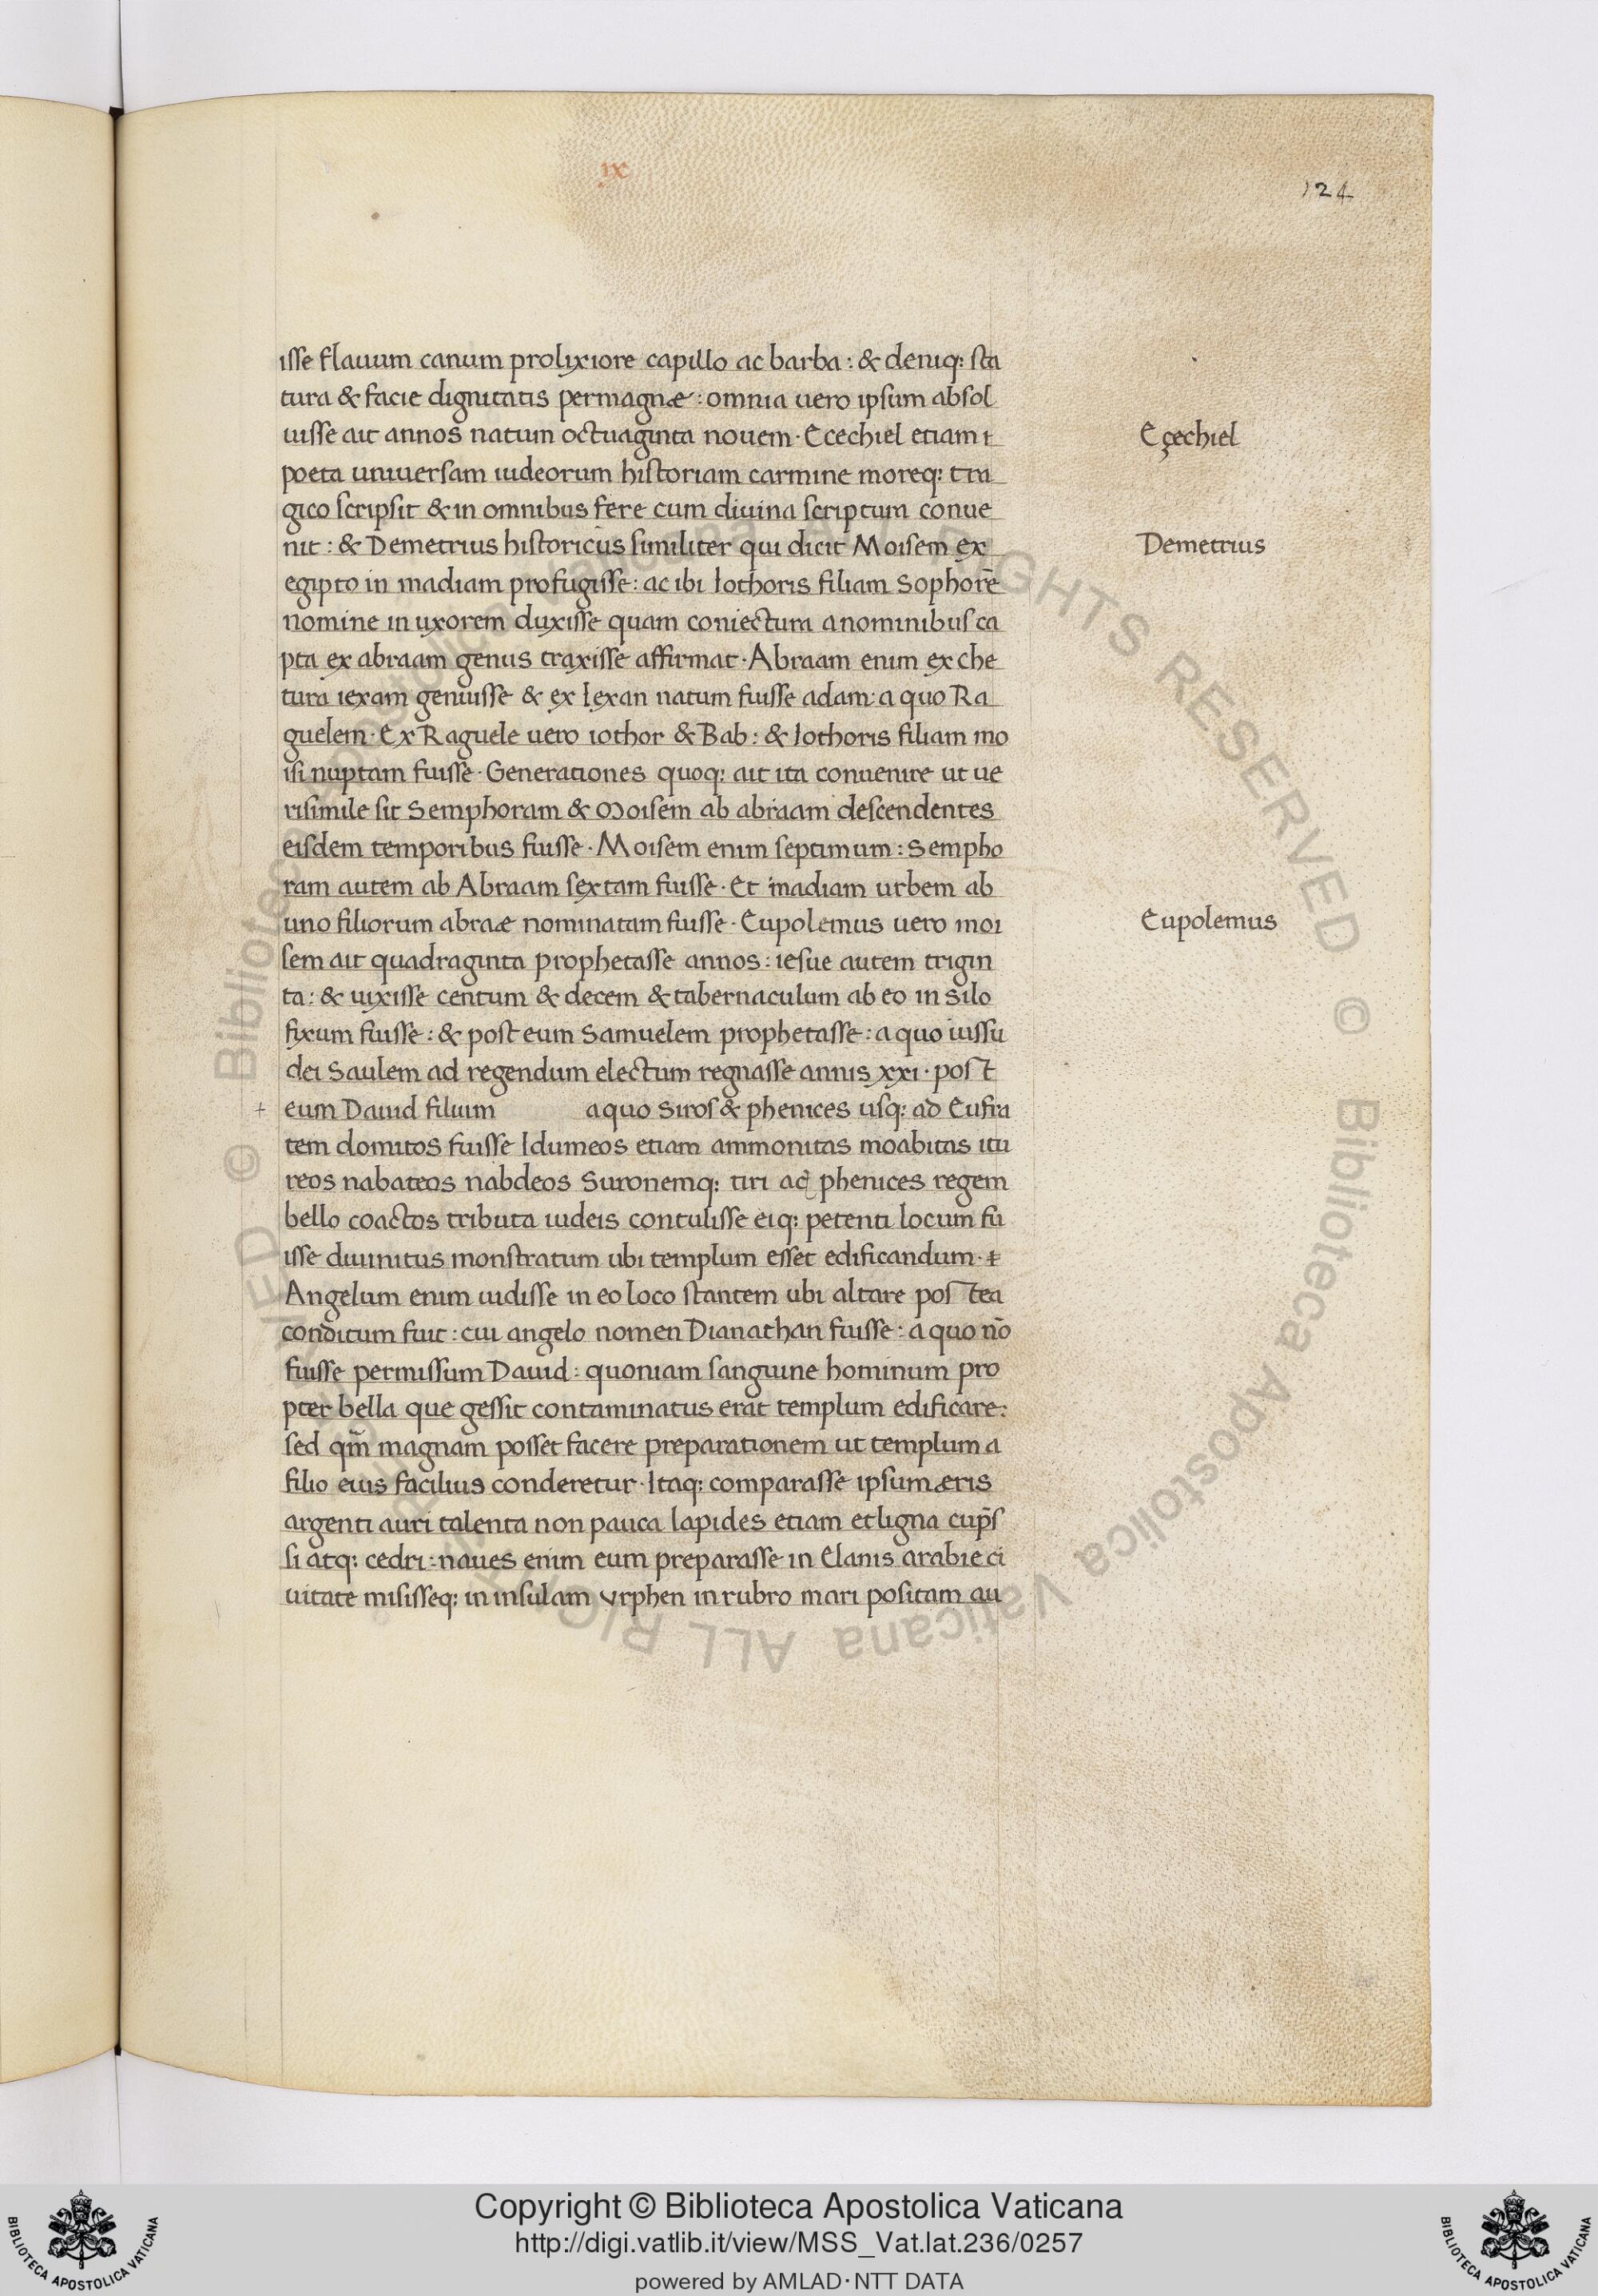 ix
124
isse flauum canum prolixiore capillo ac barba : & deniq: sta
tura & facie dignitatis permagnæ : omnia uero ipsum absol
uisse ait annos natum octuaginta nouem · Ecechiel etiam
Eçechiel
poeta uniuersam iudeorum historiam carmine moreq: tra
gico scripsit & in omnibus fere cum diuina scriptum conue
nit : & Demetrius historicus similiter qui dicit Moisem ex
Demetrius
egipto in madiam profugisse : ac ibi Iothoris filiam Sophorē
nomine in uxorem duxisse quam coniectura a nominibus ca
pta ex abraam genus traxisse affirmat · Abraam enim ex che
tura iexam genuisse & ex Iexan natum fuisse adam : a quo Ra
guelem · Ex Raguele uero iothor & Bab : & Iothoris filiam mo
isi nuptam fuisse · Generationes quoq: ait ita conuenire ut ue
risimile sit Semphoram & Moisem ab abraam descendentes
eisdem temporibus fuisse · Moisem enim septimum : Sempho
ram autem ab Abraam sextam fuisse · Et madiam urbem ab
uno filiorum abraæ nominatam fuisse · Eupolemus uero moi
Eupolemus
sem ait quadraginta prophetasse annos : iesue autem trigin
ta : & uixisse centum & decem & tabernaculum ab eo in Silo
fixum fuisse : & post eum Samuelem prophetasse : a quo iussu
dei Saulem ad regendum electum regnasse annis xxi · post
+ eum Dauid filium a quo Siros & phenices usq: ad Eufra
tem domitos fuisse Idumeos etiam ammonitas moabitas itu
reos nabateos nabdeos Suronemq: tiri ac phenices regem
bello coactos tributa iudeis contulisse eiq: petenti locum fu
isse diuinitus monstratum ubi templum esset edificandum ·
Angelum enim uidisse in eo loco stantem ubi altare postea
conditum fuit : cui angelo nomen Dianathan fuisse : a quo nō
fuisse permissum Dauid : quoniam sanguine hominum pro
pter bella que gessit contaminatus erat templum edificare :
sed qm̄ magnam posset facere preparationem ut templum a
filio eius facilius conderetur · Itaq: comparasse ipsum æris
argenti auri talenta non pauca lapides etiam et ligna cup̄s
si atq: cedri : naues enim eum preparasse in Elanis arabie ci
uitate misisseq: in insulam Vrphen in rubro mari positam au
© Biblioteca Apostolica Vaticana ALL RIGHTS RESERVED
© Biblioteca Apostolica Vaticana ALL RIGHTS RESERVED
Copyright © Biblioteca Apostolica Vaticana
http://digi.vatlib.it/view/MSS_Vat.lat.236/0257
powered by AMLAD·NTT DATA
BIBLIOTECA APOSTOLICA VATICANA
BIBLIOTECA APOSTOLICA VATICANA